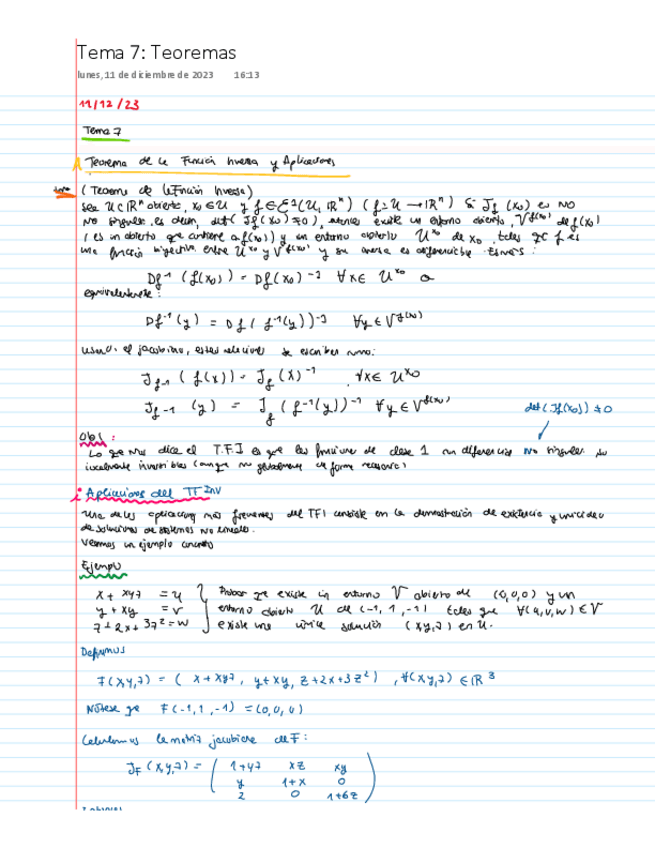 Tema 7: Teoremas
lunes, 11 de diciembre de 2023 16:13
11/12/23
Tema 7
Teorema de la Función Inversa y Aplicaciones
(Teorema de la Función Inversa)
Sea U⊂ℝⁿ abierto, x₀∈U y f∈C¹(U, ℝⁿ) (f=U→ℝⁿ) Si J_f(x₀) es NO
NO singular, es decir, det(J_f(x₀)≠0), entonces existe un entorno abierto, V^{f(x₀)} de f(x₀)
(es un abierto que contiene a f(x₀)) y un entorno abierto U^{x₀} de x₀, tales que f es
una función biyectiva entre U^{x₀} y V^{f(x₀)} y su inversa es diferenciable
Df⁻¹(f(x₀)) = Df(x₀)⁻¹ ∀x∈U^{x₀} o
equivalentemente:
Df⁻¹(y) = Df(f⁻¹(y))⁻¹ ∀y∈V^{f(x₀)}
usando el jacobiano, estas relaciones se escriben como:
J_{f⁻¹}(f(x)) = J_f(x)⁻¹, ∀x∈U^{x₀}
J_{f⁻¹}(y) = J_f(f⁻¹(y))⁻¹ ∀y∈V^{f(x₀)}
det(Jf(x₀))≠0
Obs:
Lo que nos dice el T.F.I es que las funciones de clase 1 con diferencial NO singular, son
localmente invertibles (aunque no globalmente
Aplicaciones del TF INV
Una de las aplicaciones más frecuentes del TFI consiste en la demostración de existencia y unicidad
de soluciones de sistemas NO lineales.
Veamos un ejemplo concreto
Ejemplo
x + xyz = u Probar que existe un entorno V abierto de (0,0,0) y un
y + xy = v entorno abierto U de (-1,1,-1) tales que ∀(u,v,w)∈V
z + 2x + 3z² = w existe una única solución (x,y,z) en U.
Definimos
F(x,y,z) = (x + xyz, y + xy, z + 2x + 3z²), ∀(x,y,z)∈ℝ³
Nótese que F(-1,1,-1) = (0,0,0)
Calculamos la matriz jacobiana de F:
J_F(x,y,z) = ( 1+yz xz xy
y 1+x 0
2 0 1+6z )